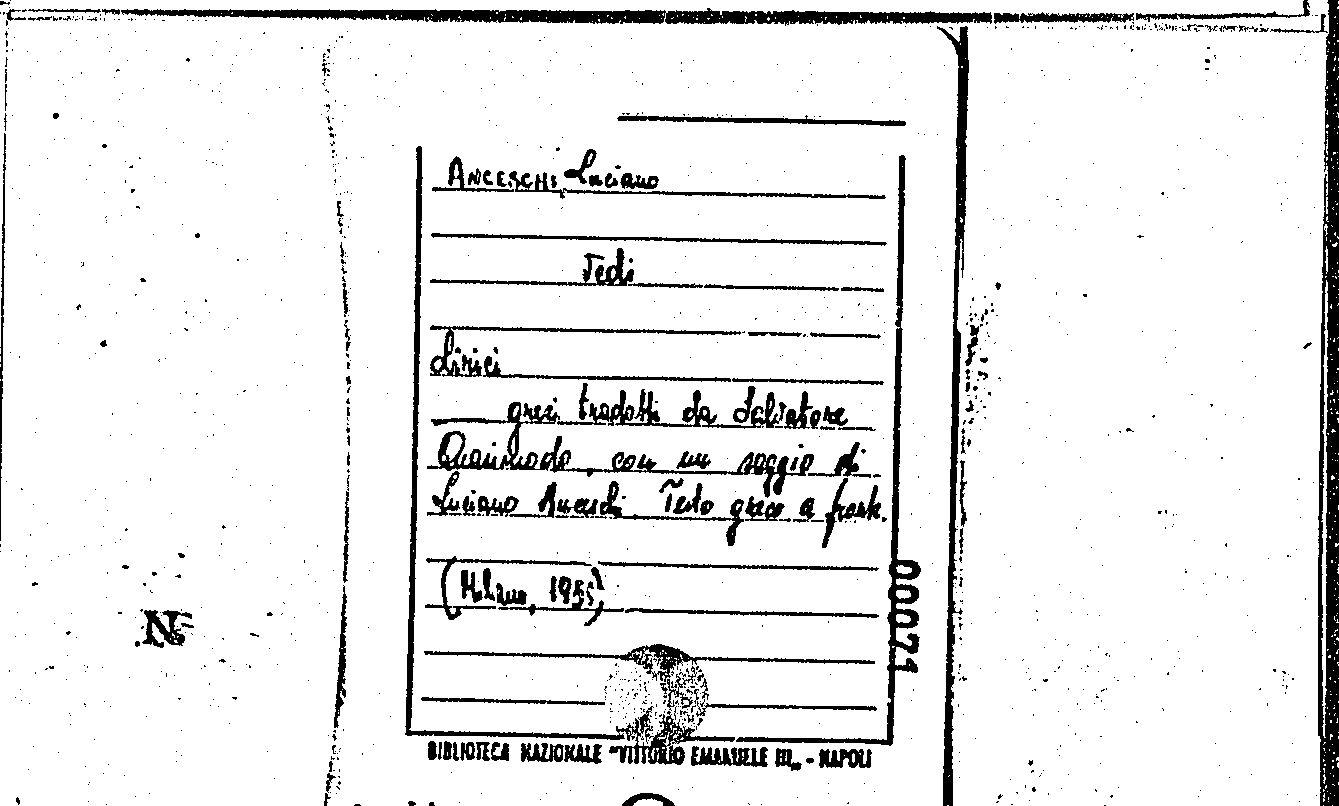 ANCESCHI, Luciano
Vedi
Lirici
greci tradotti da Salvatore
Quasimodo, con un saggio di
Luciano Anceschi. Testo greco a fronte.
(Milano, 1955)
00071
N
BIBLIOTECA NAZIONALE "VITTORIO EMANUELE III„ - NAPOLI